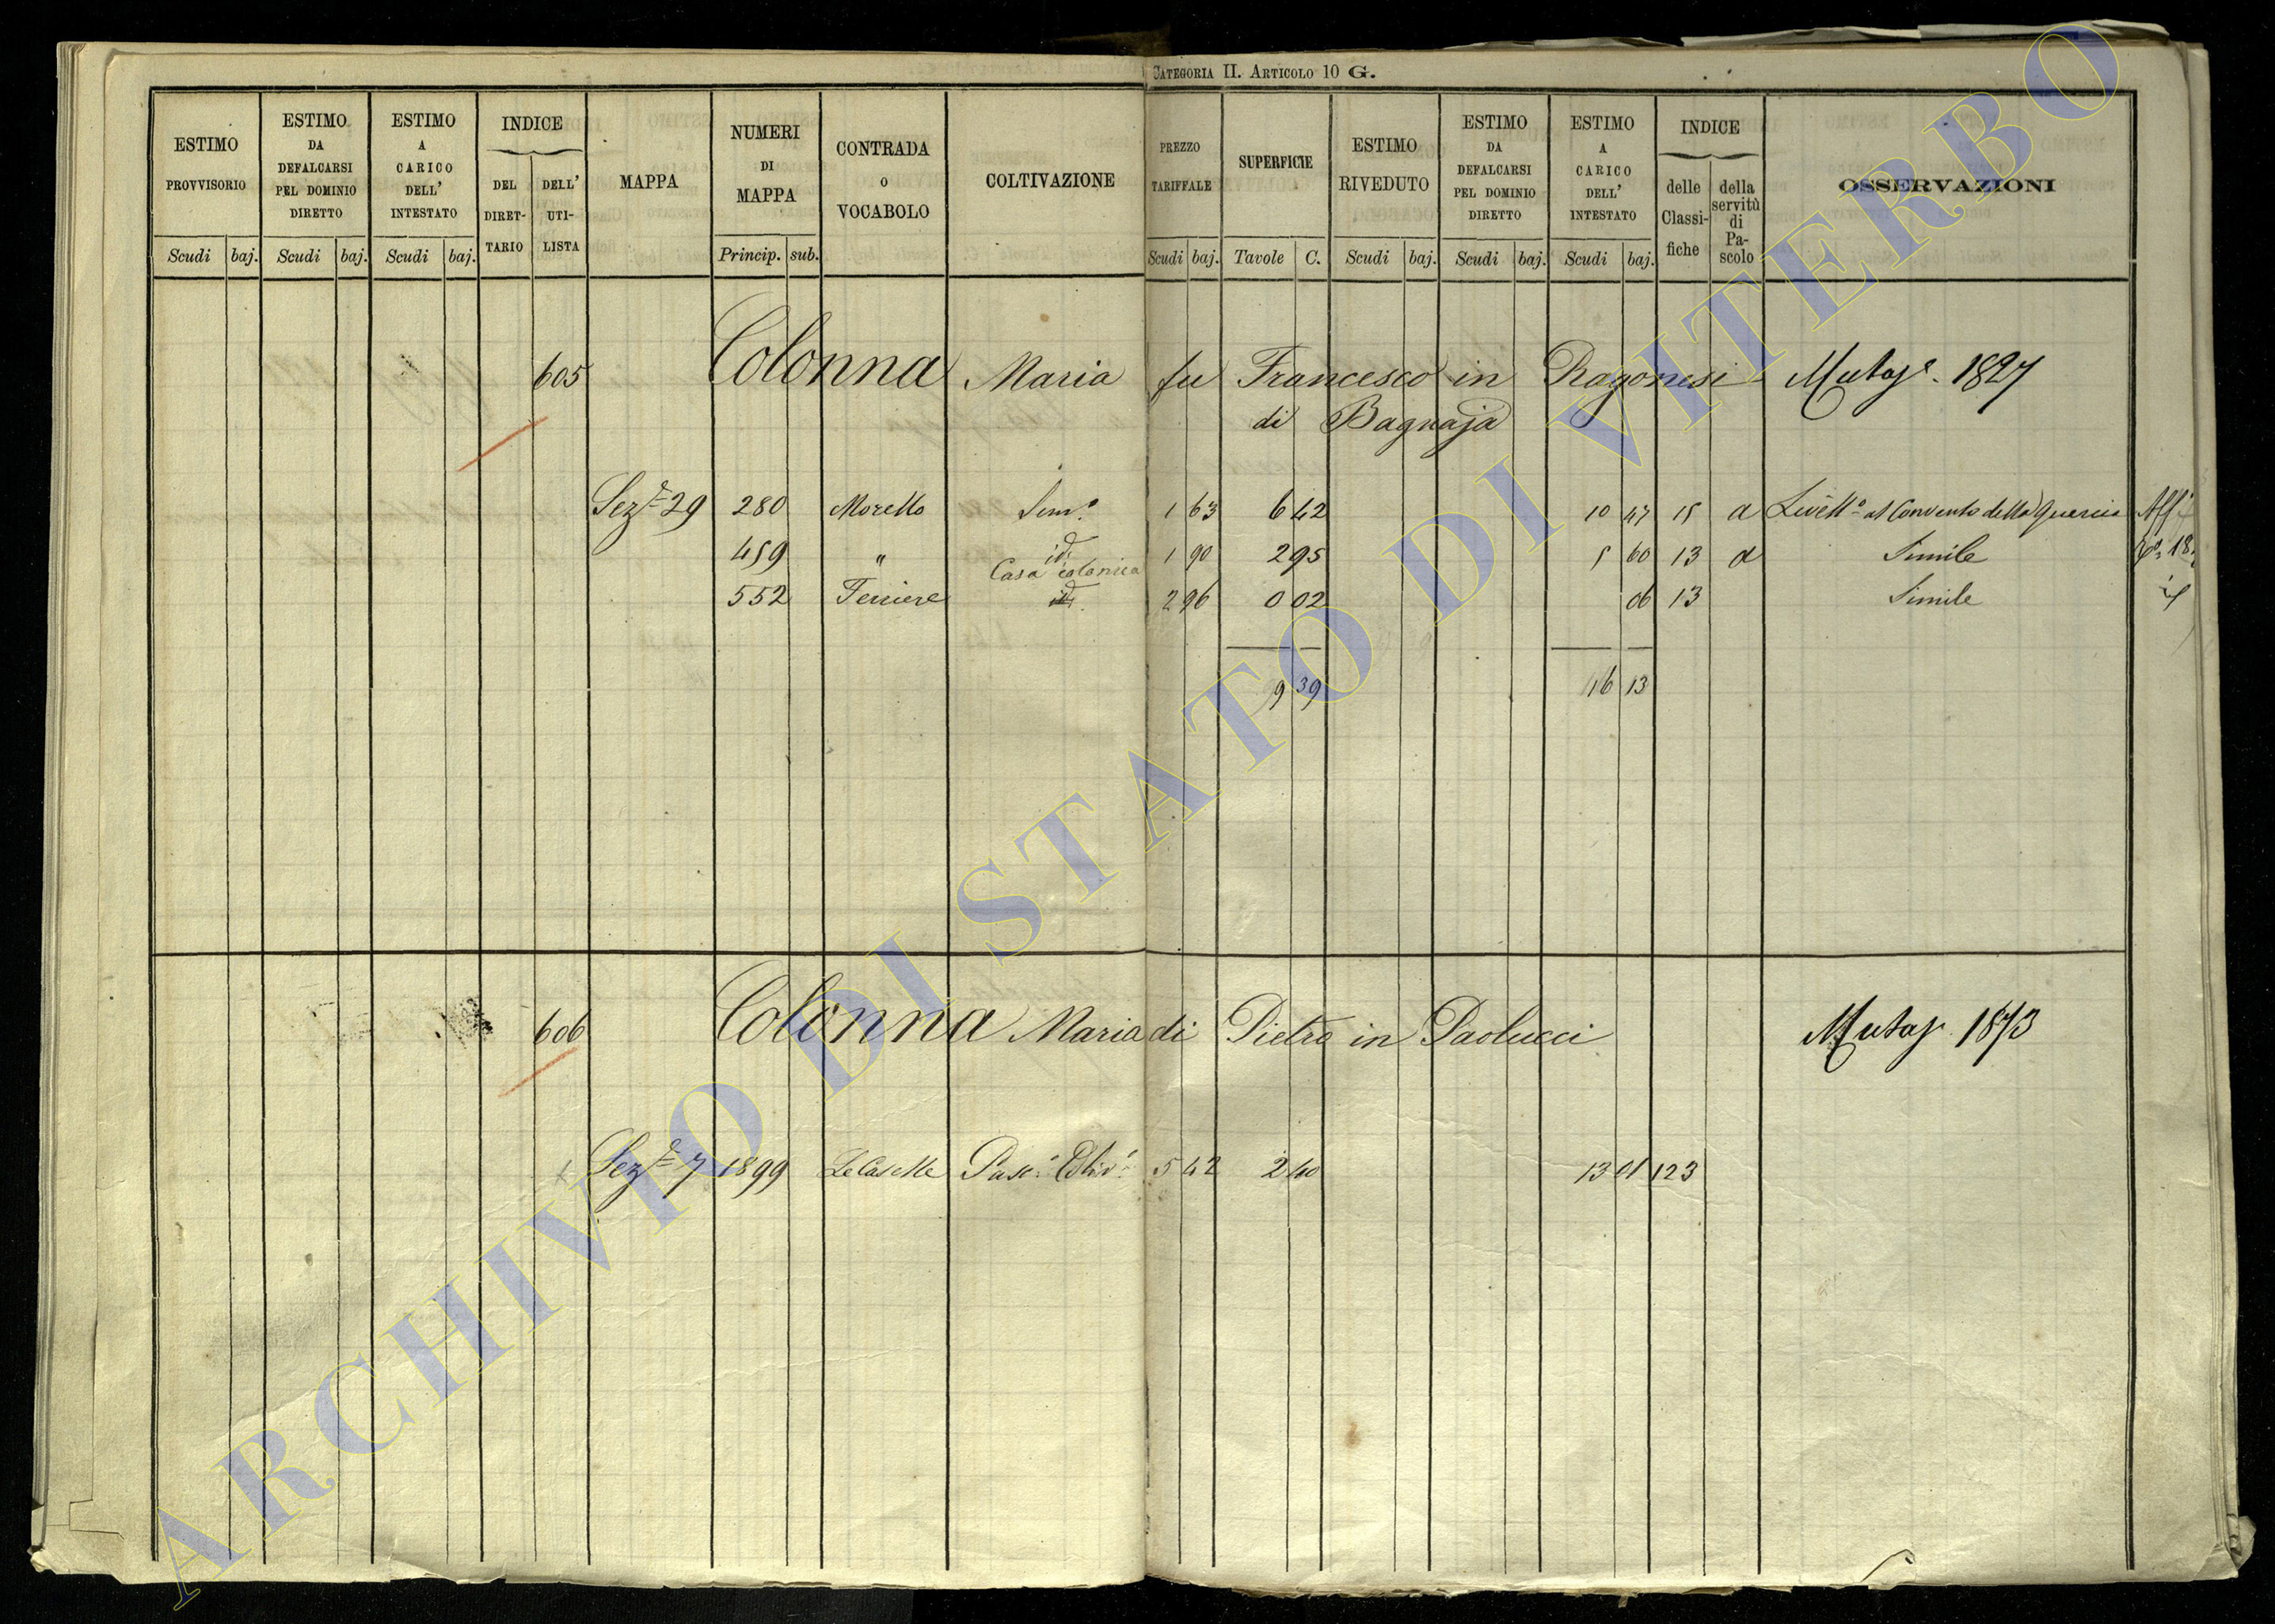 CATEGORIA II. ARTICOLO 10 G.
ESTIMO PROVVISORIO
ESTIMO DA DEFALCARSI PEL DOMINIO DIRETTO
ESTIMO A CARICO DELL' INTESTATO
INDICE
DEL DIRETTARIO
DELL' UTILISTA
MAPPA
NUMERI DI MAPPA
CONTRADA O VOCABOLO
COLTIVAZIONE
PREZZO TARIFFALE
SUPERFICIE
ESTIMO RIVEDUTO
ESTIMO DA DEFALCARSI PEL DOMINIO DIRETTO
ESTIMO A CARICO DELL' INTESTATO
INDICE
delle Classifiche
della servitù di Pascolo
OSSERVAZIONI
Scudi baj. Scudi baj. Scudi baj. Princip. sub. Scudi baj. Tavole C. Scudi baj. Scudi baj. Scudi baj.
605 Colonna Maria fu Francesco in Ragonesi Mutaze. 1827
di Bagnaja
Seze 29 280 Morello Semo. 1 63 6 42 10 47 15 a Livello al Convento della Quercia Aff
459 " id 1 90 2 95 5 60 13 a Simile
Casa colonica
552 Ferriere id. 2 96 0 02 06 13 Simile
9 39 16 13
606 Colonna Maria di Pietro in Paolucci Mutaz. 1873
Seze 7 1899 Le Caselle Pasc. Oliv. 5 42 2 40 13 01 123
ARCHIVIO DI STATO DI VITERBO